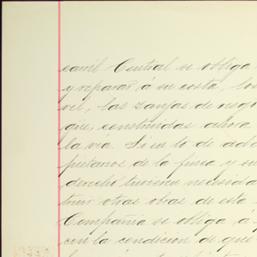 carril Central se obliga
y reparar á su costa, los
ver, las zanjas de rego
que, construidas ahora
la via. Si en lo de ade
pietarios de la finca y su
derecho tuviesen necesidad
truir otras obras de esta
Compañia se obliga á p
con la condicion de que